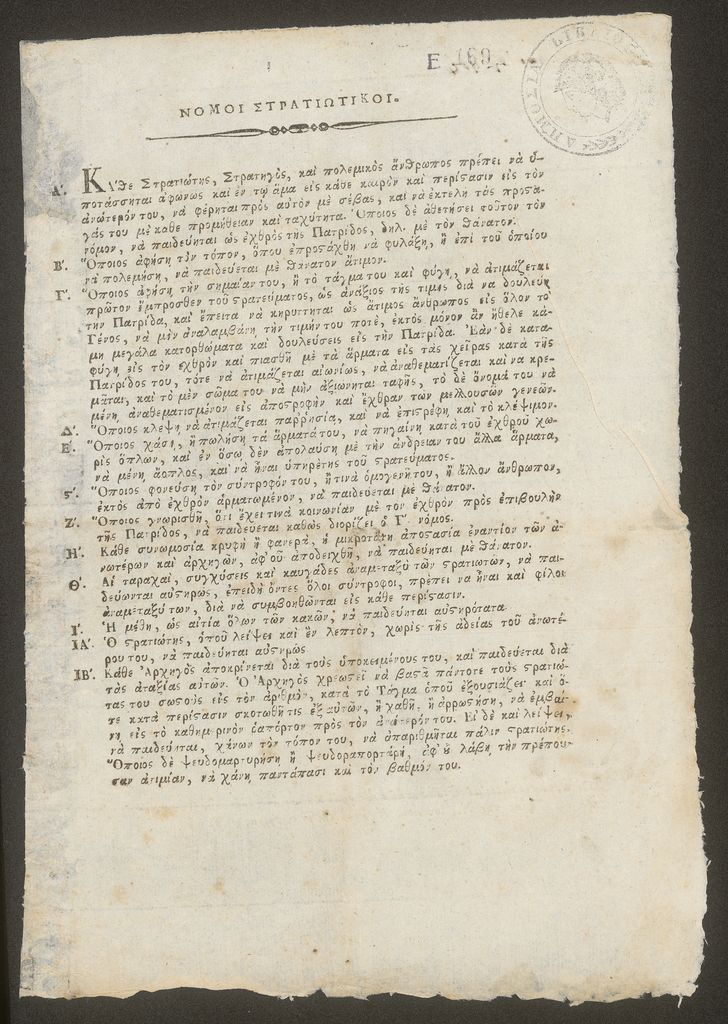 E 169
ΔΗΜΟΣΙΑ ΒΙΒΛΙΟ
ΝΟΜΟΙ ΣΤΡΑΤΙΩΤΙΚΟΙ.
Α΄. ΚΑ'θε Στρατιώτης, Στρατηγὸς, καὶ πολεμικὸς ἄνθρωπος πρέπει νὰ ὑ-
ποτάσσηται ἀφώνως καὶ ἐν τῷ ἅμα εἰς κάθε καιρὸν καὶ περίϛασιν εἰς τὸν
ἀνώτερόν του, νὰ φέρηται πρὸς αὐτὸν μὲ σέβας, καὶ νὰ ἐκτελῇ τὰς προϛα-
γάς του μὲ κάθε προμήθειαν καὶ ταχύτητα. Ὅποιος δὲ ἀθετήσει τοῦτον τὸν
νόμον, νὰ παιδεύηται ὡς ἐχθρὸς τῆς Πατρίδος, δηλ. μὲ τὸν θάνατον.
Β΄. Ὅποιος ἀφήσῃ τὸν τόπον, ὅπου ἐπροϛάχθη νὰ φυλάξῃ, ἢ ἐπὶ τοῦ ὁποίου
νὰ πολεμήσῃ, νὰ παιδεύεται μὲ θάνατον ἄτιμον.
Γ΄. Ὅποιος ἀφήσῃ τὴν σημαίαν του, ἢ τὸ τάγμα του καὶ φύγῃ, νὰ ἀτιμάζεται
πρῶτον ἔμπροσθεν τοῦ ϛρατεύματος, ὡς ἀνάξιος τῆς τιμῆς διὰ νὰ δουλεύῃ
τὴν Πατρίδα, καὶ ἔπειτα νὰ κηρύττηται ὡς ἄτιμος ἄνθρωπος εἰς ὅλον τὸ
Γένος, νὰ μὴν ἀναλαμβάνῃ τὴν τιμήν του ποτὲ, ἐκτὸς μόνον ἂν ἤθελε κά-
μῃ μεγάλα κατορθώματα καὶ δουλεύσεις εἰς τὴν Πατρίδα. Ἐὰν δὲ κατα-
φύγῃ εἰς τὸν ἐχθρὸν καὶ πιασθῇ μὲ τὰ ἅρματα εἰς τὰς χεῖρας κατὰ τῆς
Πατρίδος του, τότε νὰ ἀτιμάζεται αἰωνίως, νὰ ἀναθεματίζεται καὶ νὰ κρε-
μᾶται, καὶ τὸ μὲν σῶμα του νὰ μὴν ἀξιώνηται ταφῆς, τὸ δὲ ὄνομά του νὰ
μένῃ ἀναθεματισμένον εἰς ἀποϛροφὴν καὶ ἔχθραν τῶν μελλουσῶν γενεῶν.
Δ΄. Ὅποιος κλέψῃ νὰ ἀτιμάζεται παῤῥησίᾳ, καὶ νὰ ἐπιϛρέφῃ καὶ τὸ κλέψιμον.
Ε΄. Ὅποιος χάσῃ, ἢ πωλήσῃ τὰ ἅρματά του, νὰ πηγαίνῃ κατὰ τοῦ ἐχθροῦ χω-
ρὶς ὅπλων, καὶ ἐν ὅσῳ δὲν ἀπολαύσῃ μὲ τὴν ἀνδρείαν του ἄλλα ἅρματα,
νὰ μένῃ ἄοπλος, καὶ νὰ ἦναι ὑπηρέτης τοῦ ϛρατεύματος.
ϛ΄. Ὅποιος φονεύσῃ τὸν σύντροφόν του, ἤ τινα ὁμογενῆ του, ἢ ἄλλον ἄνθρωπον,
ἐκτὸς ἀπὸ ἐχθρὸν ἁρματωμένον, νὰ παιδεύεται μὲ θάνατον.
Ζ΄. Ὅποιος γνωρισθῇ, ὅτι ἔχει τινὰ κοινωνίαν μὲ τὸν ἐχθρὸν πρὸς ἐπιβουλὴν
τῆς Πατρίδος, νὰ παιδεύεται καθὼς διορίζει ὁ Γ΄. νόμος.
Η΄. Κάθε συνωμοσία κρυφὴ ἢ φανερὰ, ἢ μικροτάτη ἀποϛασία ἐναντίον τῶν ἀ-
νωτέρων καὶ ἀρχηγῶν, ἀφ' οὗ ἀποδειχθῇ, νὰ παιδεύηται μὲ θάνατον.
Θ΄. Αἱ ταραχαὶ, συγχύσεις καὶ καυγάδες ἀναμεταξὺ τῶν ϛρατιωτῶν, νὰ παι-
δεύωνται αὐϛηρῶς, ἐπειδὴ ὄντες ὅλοι σύντροφοι, πρέπει νὰ ἦναι καὶ φίλοι
ἀναμεταξύ των, διὰ νὰ συμβοηθῶνται εἰς κάθε περίϛασιν.
Ι΄. Ἡ μέθη, ὡς αἰτία ὅλων τῶν κακῶν, νὰ παιδεύηται αὐϛηρότατα.
ΙΑ΄. Ὁ ϛρατιώτης, ὁποῦ λείψει καὶ ἓν λεπτὸν, χωρὶς τῆς ἀδείας τοῦ ἀνωτέ-
ρου του, νὰ παιδεύηται αὐϛηρῶς
ΙΒ΄. Κάθε Ἀρχηγὸς ἀποκρίνεται διὰ τοὺς ὑποκειμένους του, καὶ παιδεύεται διὰ
τὰς ἀταξίας αὐτῶν. Ὁ Ἀρχηγὸς χρεωϛεῖ νὰ βαϛᾷ πάντοτε τοὺς ϛρατιώ-
τας του σωϛοὺς εἰς τὸν ἀριθμὸν, κατὰ τὸ Τάγμα ὁποῦ ἐξουσιάζει καὶ ὅ-
τε κατὰ περίϛασιν σκοτωθῇ τις ἐξ αὐτῶν, ἢ χαθῇ, ἢ ἀῤῥωϛήσῃ, νὰ ἐμβαί-
νῃ εἰς τὸ καθημερινὸν ῥαπόρτον πρὸς τὸν ἀνώτερόν του. Εἰ δὲ καὶ λείψει,
νὰ παιδεύηται, χάνων τὸν τόπον του, νὰ ἀπαριθμῆται πάλιν ϛρατιώτης.
Ὅποιος δὲ ψευδομαρτυρήσῃ ἢ ψευδοραπορτάρῃ, ἀφ' οὗ λάβῃ τὴν πρέπου-
σαν ἀτιμίαν, νὰ χάνῃ παντάπασι καὶ τὸν βαθμόν του.